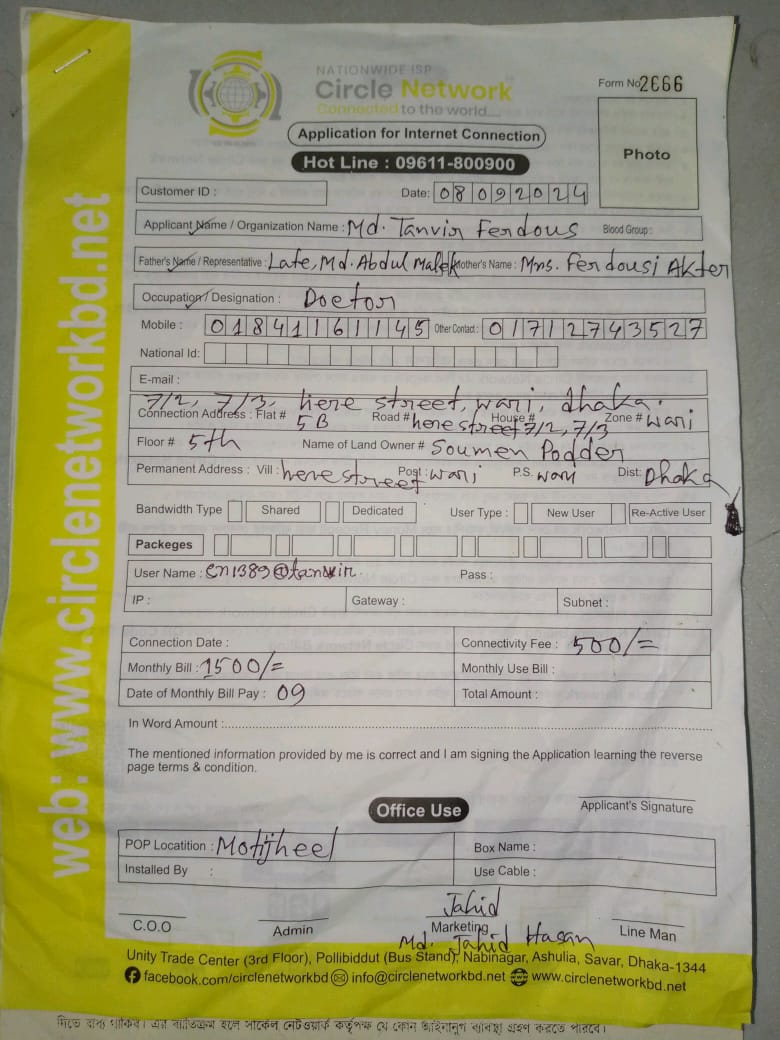 NATIONWIDE ISP
Circle Network
Connected to the world....
Form No 2666
Application for Internet Connection
Hot Line : 09611-800900
Photo
Customer ID :
Date: 08092024
Applicant Name / Organization Name : Md. Tanvir Ferdous Blood Group :
Father's Name / Representative : Late, Md. Abdul Malek Mother's Name : Mrs. Ferdousi Akter
Occupation / Designation : Doctor
Mobile : 01841161145 Other Contact : 01712743527
National Id:
E-mail :
7/2, 7/3, here street, wari, dhaka.
Connection Address : Flat # 5B Road # here street House # 7/2, 7/3 Zone # wari
Floor # 5th Name of Land Owner # Soumen Podder
Permanent Address : Vill : here street Post : wari P.S. wari Dist: Dhaka
Bandwidth Type Shared Dedicated User Type : New User Re-Active User
Packeges
User Name : cn1389@tanvir. Pass :
IP : Gateway : Subnet :
Connection Date : Connectivity Fee : 500/=
Monthly Bill : 1500/= Monthly Use Bill :
Date of Monthly Bill Pay : 09 Total Amount :
In Word Amount :
The mentioned information provided by me is correct and I am signing the Application learning the reverse
page terms & condition.
Applicant's Signature
Office Use
POP Locatition : Motijheel Box Name :
Installed By : Use Cable :
Jahid
C.O.O Admin Marketing Line Man
Md. Jahid Hasan
Unity Trade Center (3rd Floor), Pollibiddut (Bus Stand), Nabinagar, Ashulia, Savar, Dhaka-1344
facebook.com/circlenetworkbd info@circlenetworkbd.net www.circlenetworkbd.net
web: www.circlenetworkbd.net
দিতে বাধ্য থাকিব। এর ব্যতিক্রম হলে সার্কেল নেটওয়ার্ক কর্তৃপক্ষ যে কোন আইনানুগ ব্যবস্থা গ্রহণ করতে পারবে।